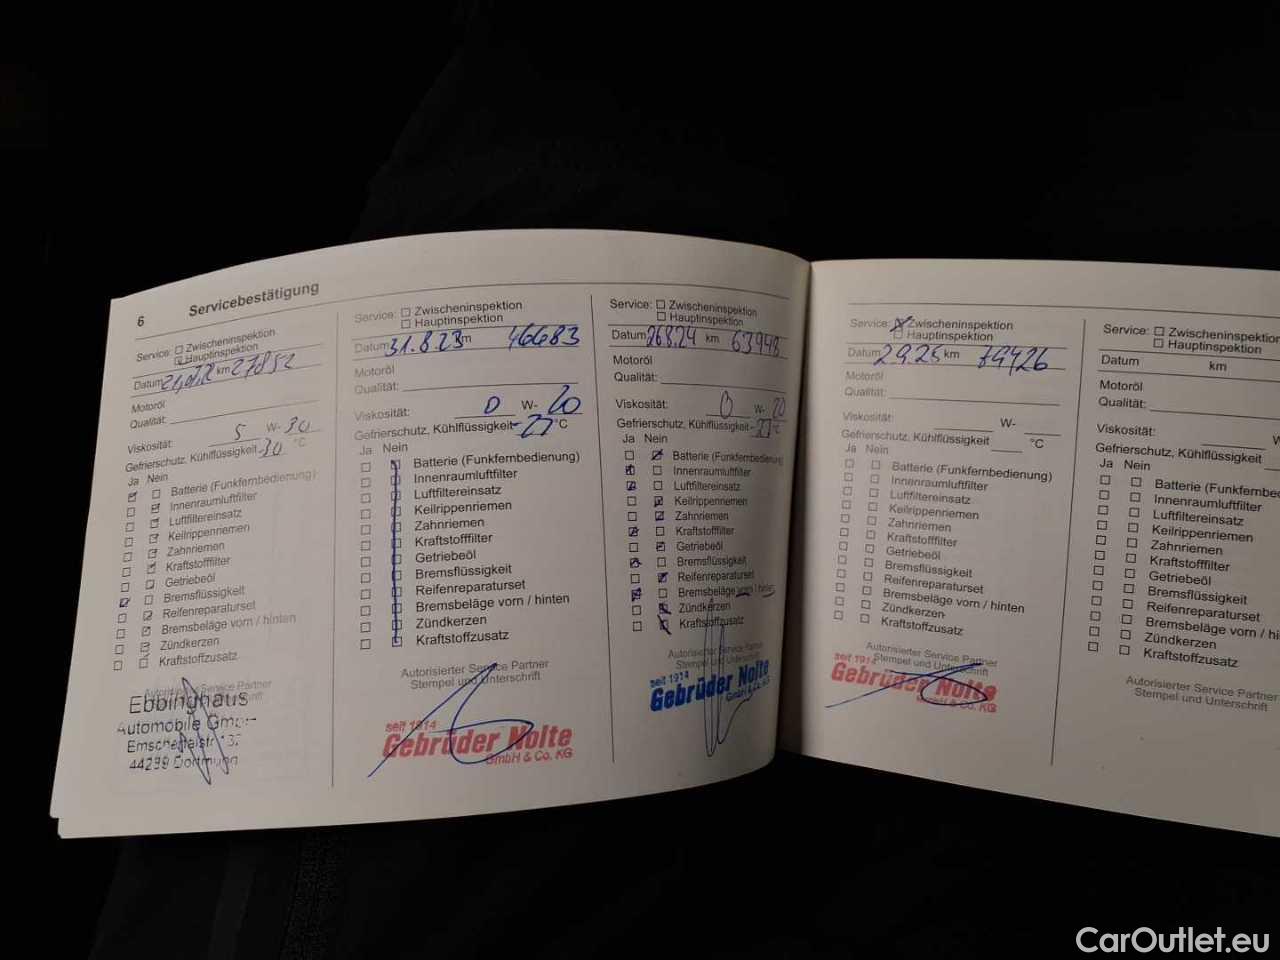 6 Servicebestätigung
Service: Zwischeninspektion
Hauptinspektion
Datum km 27852
Motoröl
Qualität:
Viskosität: 5 W- 30
Gefrierschutz, Kühlflüssigkeit -30 °C
Ja Nein
Batterie (Funkfernbedienung)
Innenraumluftfilter
Luftfiltereinsatz
Keilrippenriemen
Zahnriemen
Kraftstofffilter
Getriebeöl
Bremsflüssigkeit
Reifenreparaturset
Bremsbeläge vorn / hinten
Zündkerzen
Kraftstoffzusatz
Autorisierter Service Partner
Stempel und Unterschrift
Ebbinghaus
Automobile GmbH
Emscherallstr. 132
44239 Dortmund
Service: Zwischeninspektion
Hauptinspektion
Datum 31.8.23 km 46683
Motoröl
Qualität:
Viskosität: 0 W- 20
Gefrierschutz, Kühlflüssigkeit -27 °C
Ja Nein
Batterie (Funkfernbedienung)
Innenraumluftfilter
Luftfiltereinsatz
Keilrippenriemen
Zahnriemen
Kraftstofffilter
Getriebeöl
Bremsflüssigkeit
Reifenreparaturset
Bremsbeläge vorn / hinten
Zündkerzen
Kraftstoffzusatz
Autorisierter Service Partner
Stempel und Unterschrift
seit 1914
Gebrüder Nolte
GmbH & Co. KG
Service: Zwischeninspektion
Hauptinspektion
Datum 26.8.24 km 63948
Motoröl
Qualität:
Viskosität: 0 W- 20
Gefrierschutz, Kühlflüssigkeit -27 °C
Ja Nein
Batterie (Funkfernbedienung)
Innenraumluftfilter
Luftfiltereinsatz
Keilrippenriemen
Zahnriemen
Kraftstofffilter
Getriebeöl
Bremsflüssigkeit
Reifenreparaturset
Bremsbeläge vorn / hinten
Zündkerzen
Kraftstoffzusatz
Autorisierter Service Partner
Stempel und Unterschrift
seit 1914
Gebrüder Nolte
GmbH & Co. KG
Service: Zwischeninspektion
Hauptinspektion
Datum 2.9.25 km 79426
Motoröl
Qualität:
Viskosität: W-
Gefrierschutz, Kühlflüssigkeit °C
Ja Nein
Batterie (Funkfernbedienung)
Innenraumluftfilter
Luftfiltereinsatz
Keilrippenriemen
Zahnriemen
Kraftstofffilter
Getriebeöl
Bremsflüssigkeit
Reifenreparaturset
Bremsbeläge vorn / hinten
Zündkerzen
Kraftstoffzusatz
Autorisierter Service Partner
Stempel und Unterschrift
seit 1914
Gebrüder Nolte
GmbH & Co. KG
Service: Zwischeninspektion
Hauptinspektion
Datum km
Motoröl
Qualität:
Viskosität: W-
Gefrierschutz, Kühlflüssigkeit
Ja Nein
Batterie (Funkfernbe
Innenraumluftfilter
Luftfiltereinsatz
Keilrippenriemen
Zahnriemen
Kraftstofffilter
Getriebeöl
Bremsflüssigkeit
Reifenreparaturset
Bremsbeläge vorn / hi
Zündkerzen
Kraftstoffzusatz
Autorisierter Service Partner
Stempel und Unterschrift
CarOutlet.eu